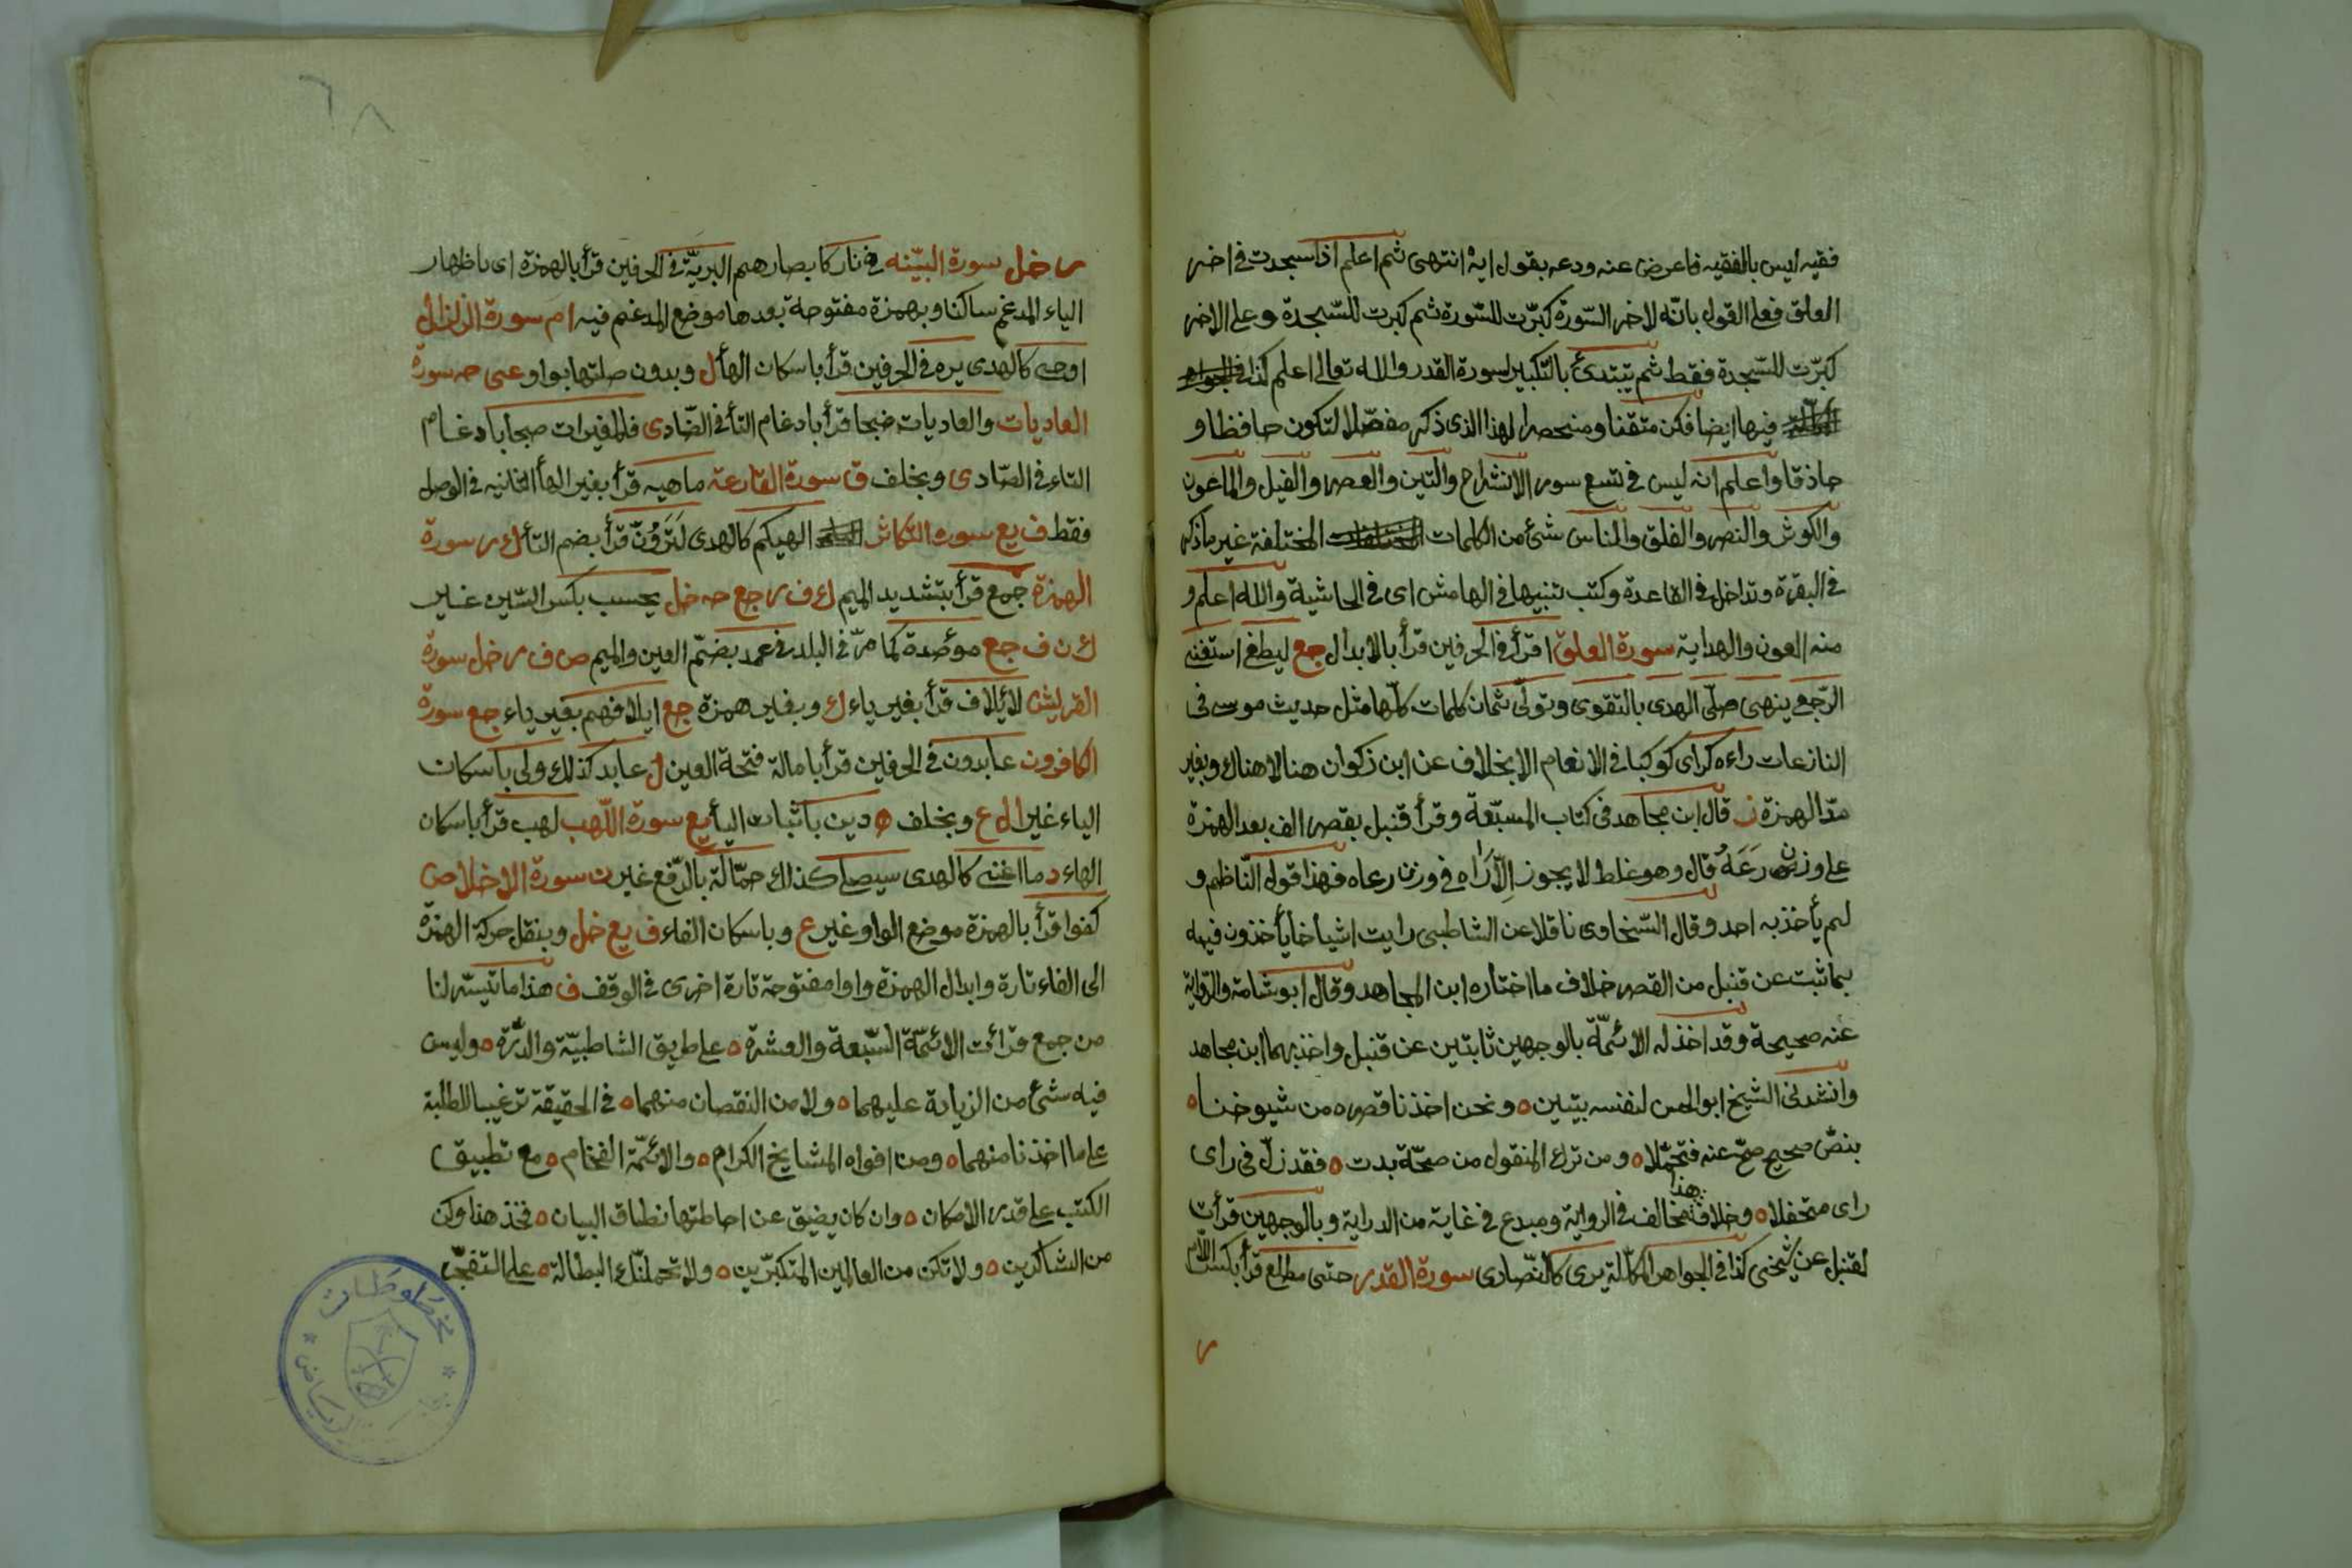 فقيه ليس بالفقيه فاعرض عنه ودعه بقول ايه انتهى ثم اعلم اذا سجدت في اخر
العلق فعلى القول بانّه لاخر السّورة كبّرت للسّورة ثم كبرت للسّجدة وعلى الاخر
كبّرت للسّجدة فقط ثم تبتدئ بالتّكبير لسورة القدر والله تعالى اعلم كذا في الجواهر
فيها ايضا فكن متقنا ومنحصرا لهذا الذى ذكر مفصّلا لتكون حافظا و
حاذقا واعلم انه ليس في تسع سور الانشراح والتين والعصر والفيل والماعون
والكوثر والنصر والفلق والناس شئ من الكلمات المختلفة غير ما ذكر
في البقرة وتداخل في القاعدة وكتب تنبيها في الهامش اى في الحاشية والله اعلم و
منه العون والهداية سورة العلق اقرأ في الحرفين قرأ بالابدال جع ليطغى استغنى
الرّجعى ينهى صلّى الهدى بالتقوى وتولّى ثمان كلمات كلّها مثل حديث موسى في
النازعات راءه كراى كوكبا في الانعام الا بخلاف عن ابن ذكوان هنا لا هناك وبغير
مدّ الهمزة ز قال ابن مجاهد في كتاب المسبّعة وقرأ قنبل بقصر الف بعد الهمزة
على وزن رَعَهُ قال وهو غلط لا يجوز إلّا رَاٰه في وزن رعاه فهذا قول النّاظم و
لم يأخذ به احد وقال السّخاوى ناقلا عن الشاطبى رايت اشياخا يأخذون فيه
بما ثبت عن قنبل من القصر خلاف ما اختاره ابن المجاهد وقال ابو شامة والرّواية
عنه صحيحة وقد اخذ له الائمّة بالوجهين ثابتين عن قنبل واخذ بهما ابن مجاهد
وانشدنى الشيخ ابو الحسن لنفسه بيتين ه ونحن اخذنا قصره من شيوخنا ه
بنصّ صحيح صحّ عنه فتحمّلا ه ومن ترك المنقول من صحّة بدت ه فقد زلّ في راى
راى متخفلا ه وخلاف هذا مخالف في الرواية ومبدع في غاية من الدراية وبالوجهين قرأت
لقنبل عن شيخى كذا في الجواهر المكلّلة يرى كالنّصارى سورة القدر حتى مطلع قرأ بكسر اللّام
ر
٦٨
ر خل سورة البيّنه في نار كابصارهم البريّة في الحرفين قرأ بالهمزة اى باظهار
الياء المدغم ساكنا وبهمزة مفتوحة بعدها موضع المدغم فيه ا م سورة الزلزال
اوحى كالهدى يره في الحرفين قرأ باسكان الهأ ل وبدون صلتها بواو عى حه سورة
العاديات والعاديات ضبحا قرأ بادغام التأ في الضّاد ى فالمغيرات صبحا بادغام
التاء في الصّاد ى وبخلف ق سورة القارعة ماهيه قرأ بغير الهأ الثانيه في الوصل
فقط ف يع سورة التكاثر الهيكم كالهدى لَتَرَوُنّ قرأ بضم التأ ك ر سورة
الهمزة جمع قرأ بتشديد الميم ك ف ر جع حه خل يحسب بكسر السّين غير
ك ن ف جع مؤصدة كما مرّ في البلد في عمد بضمّ العين والميم ص ف ر خل سورة
القريش لائيلاف قرأ بغير ياء ك وبغير همزة جع ايلافهم بغير ياء جع سورة
الكافرون عابدون في الحرفين قرأ بامالة فتحة العين ل عابد كذلك ولى باسكان
الياء غير ا ل ع وبخلف ه دين باثبات اليأ يع سورة اللّهب لهب قرأ باسكان
الهاء د ما اغنى كالهدى سيصلى كذلك حمّالة بالرّفع غير ن سورة الاخلاص
كفوا قرأ بالهمزة موضع الواو غير ع وباسكان الفاء ف يع خل وبنقل حركة الهمزة
الى الفاء تارة وابدال الهمزة واوا مفتوحة تارة اخرى في الوقف ف هذا ما تيسّر لنا
من جمع قرائت الائمّة السّبعة والعشرة ه على طريق الشاطبيّة والدّرّة ه وليس
فيه شئ من الزيادة عليهما ه ولا من النقصان منهما ه في الحقيقة ترغيبا للطلبة
على ما اخذنا منهما ه ومن افواه المشايخ الكرام ه والائمّة الفخام ه مع تطبيق
الكتب على قدر الامكان ه وان كان يضيق عن احاطتها نطاق البيان ه فخذ هذا وكن
من الشاكرين ه ولا تكن من العالمين المتكبّرين ه ولا تحملنّك البطالة ه على التفجّى
مخطوطات
الرياض